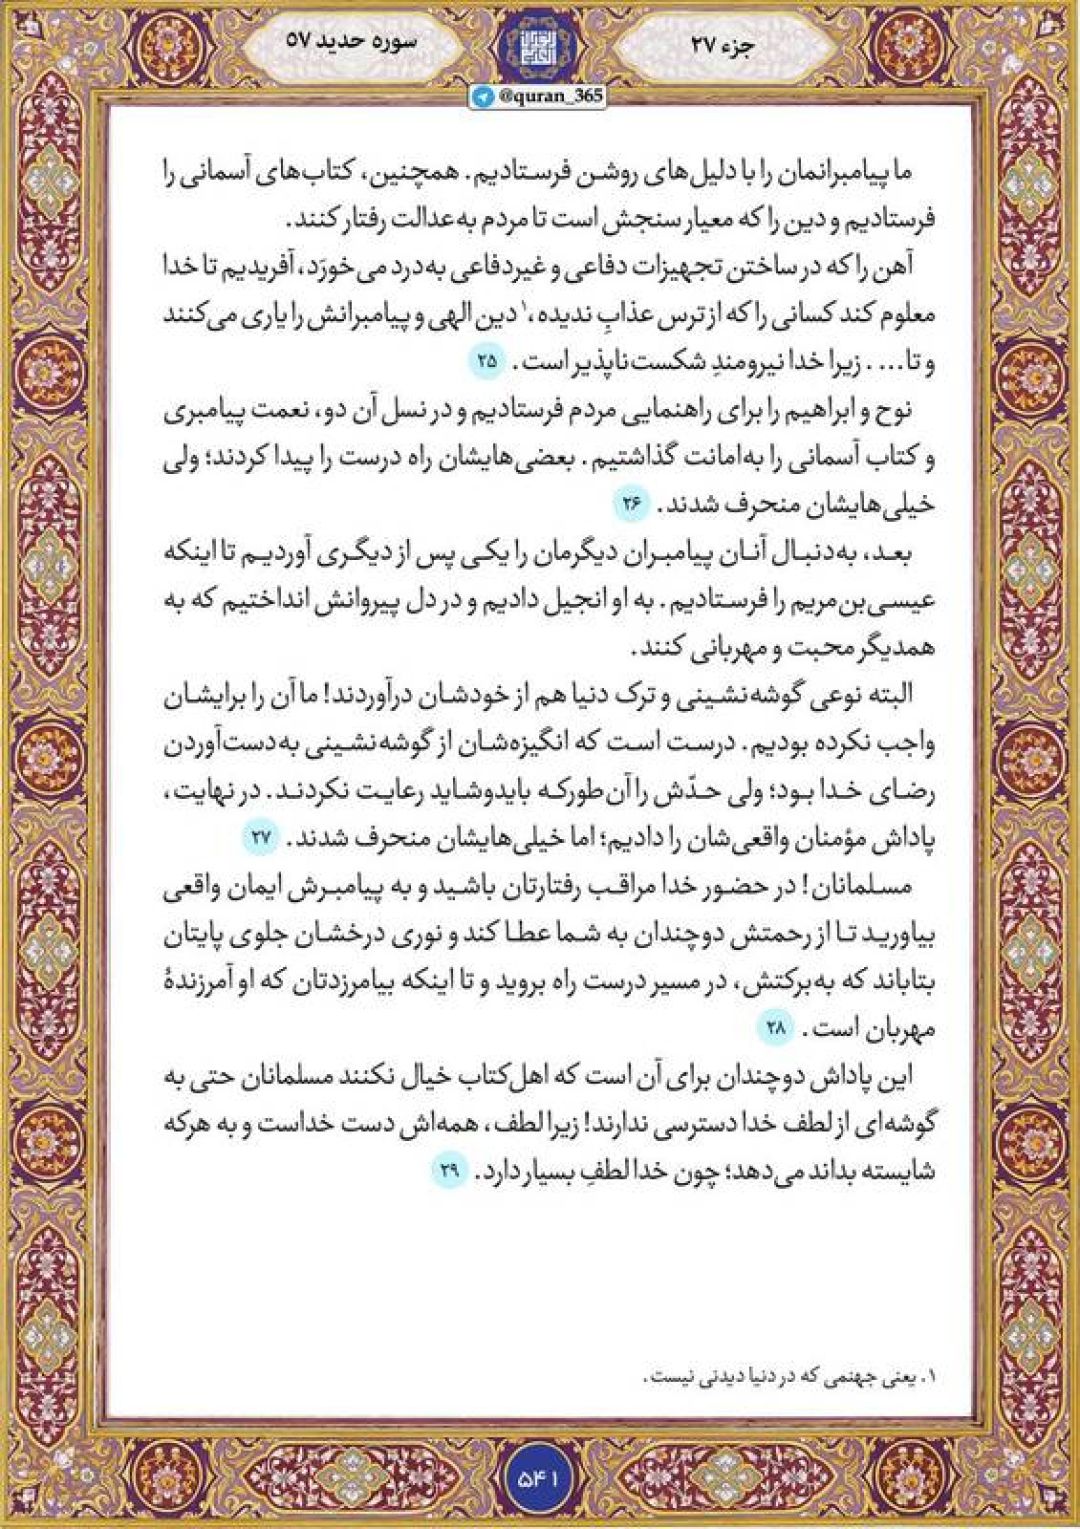 جزء ۲۷
سوره حدید ۵۷
@quran_365
ما پیامبرانمان را با دلیل‌های روشن فرستادیم. همچنین، کتاب‌های آسمانی را
فرستادیم و دین را که معیار سنجش است تا مردم به‌عدالت رفتار کنند.
آهن را که در ساختن تجهیزات دفاعی و غیردفاعی به‌درد می‌خورَد، آفریدیم تا خدا
معلوم کند کسانی را که از ترس عذابِ ندیده،۱ دین الهی و پیامبرانش را یاری می‌کنند
و تا.... زیرا خدا نیرومندِ شکست‌ناپذیر است. ۲۵
نوح و ابراهیم را برای راهنمایی مردم فرستادیم و در نسل آن دو، نعمت پیامبری
و کتاب آسمانی را به‌امانت گذاشتیم. بعضی‌هایشان راه درست را پیدا کردند؛ ولی
خیلی‌هایشان منحرف شدند. ۲۶
بعد، به‌دنبال آنان پیامبران دیگرمان را یکی پس از دیگری آوردیم تا اینکه
عیسی‌بن‌مریم را فرستادیم. به او انجیل دادیم و در دل پیروانش انداختیم که به
همدیگر محبت و مهربانی کنند.
البته نوعی گوشه‌نشینی و ترک دنیا هم از خودشان درآوردند! ما آن را برایشان
واجب نکرده بودیم. درست است که انگیزه‌شان از گوشه‌نشینی به‌دست‌آوردن
رضای خدا بود؛ ولی حدّش را آن‌طورکه بایدوشاید رعایت نکردند. در نهایت،
پاداش مؤمنان واقعی‌شان را دادیم؛ اما خیلی‌هایشان منحرف شدند. ۲۷
مسلمانان! در حضور خدا مراقب رفتارتان باشید و به پیامبرش ایمان واقعی
بیاورید تا از رحمتش دوچندان به شما عطا کند و نوری درخشان جلوی پایتان
بتاباند که به‌برکتش، در مسیر درست راه بروید و تا اینکه بیامرزدتان که او آمرزندهٔ
مهربان است. ۲۸
این پاداش دوچندان برای آن است که اهل‌کتاب خیال نکنند مسلمانان حتی به
گوشه‌ای از لطف خدا دسترسی ندارند! زیرا لطف، همه‌اش دست خداست و به هرکه
شایسته بداند می‌دهد؛ چون خدا لطفِ بسیار دارد. ۲۹
۱. یعنی جهنمی که در دنیا دیدنی نیست.
۵۴۱